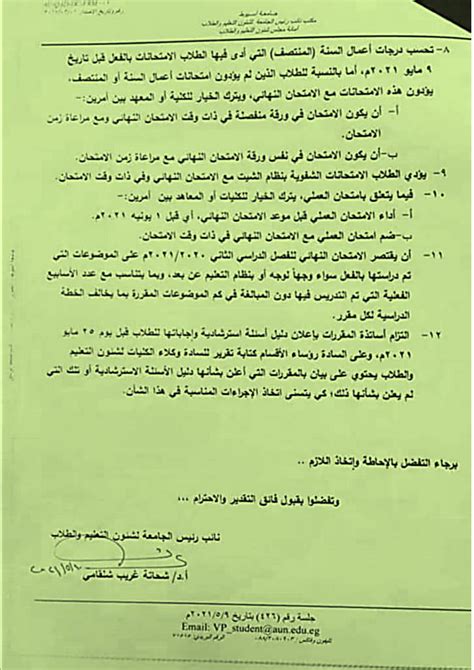 جامعة أسيوط
مكتب نائب رئيس الجامعة لشئون التعليم والطلاب
أمانة مجلس شئون التعليم والطلاب
٨- تحسب درجات أعمال السنة (المنتصف) التي أدى فيها الطلاب الامتحانات بالفعل قبل تاريخ
٩ مايو ٢٠٢١م، أما بالنسبة للطلاب الذين لم يؤدون امتحانات أعمال السنة أو المنتصف،
يؤدون هذه الامتحانات مع الامتحان النهائي، ويترك الخيار للكلية أو المعهد بين أمرين:-
أ- أن يكون الامتحان في ورقة منفصلة في ذات وقت الامتحان النهائي ومع مراعاة زمن
الامتحان.
ب- أن يكون الامتحان في نفس ورقة الامتحان النهائي مع مراعاة زمن الامتحان.
٩- يؤدي الطلاب الامتحانات الشفوية بنظام الشيت مع الامتحان النهائي وفي ذات الوقت.
١٠- فيما يتعلق بامتحان العملي، يترك الخيار للكليات أو المعاهد بين أمرين:-
أ- أداء الامتحان العملي قبل موعد الامتحان النهائي، أي قبل ١ يونيه ٢٠٢١م.
ب- ضم امتحان العملي مع الامتحان النهائي في ذات وقت الامتحان.
١١- أن يقتصر الامتحان النهائي للفصل الدراسي الثاني ٢٠٢١/٢٠٢٠م على الموضوعات التي
تم دراستها بالفعل سواء وجهاً لوجه أو بنظام التعليم عن بعد، وبما يتناسب مع عدد الأسابيع
الفعلية التي تم التدريس فيها دون المبالغة في كم الموضوعات المقررة بما يخالف الخطة
الدراسية لكل مقرر.
١٢- التزام أساتذة المقررات بإعلان دليل أسئلة استرشادية وإجاباتها للطلاب قبل يوم ٢٥ مايو
٢٠٢١م، وعلى السادة رؤساء الأقسام كتابة تقرير للسادة وكلاء الكليات لشئون التعليم
والطلاب يحتوي على بيان بالمقررات التي أعلن بشأنها دليل الأسئلة الاسترشادية أو تلك التي
لم يعلن بشأنها ذلك؛ كي يتسنى اتخاذ الإجراءات المناسبة في هذا الشأن.
برجاء التفضل بالإحاطة وإتخاذ اللازم ..
وتفضلوا بقبول فائق التقدير والاحترام ...
نائب رئيس الجامعة لشئون التعليم والطلاب
أ.د/ شحاتة غريب شلقامي
جلسة رقم (٤٢٦) ٢٠٢١/٥/٩م
Email: VP_student@aun.edu.eg